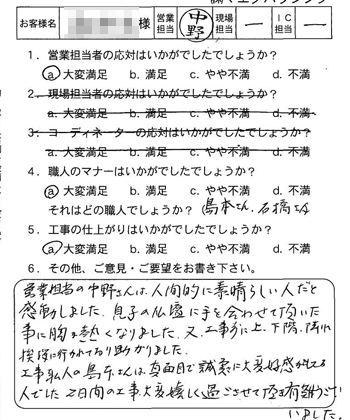 お客様名 様 営業担当 中野 現場担当 ー IC担当 ー
1．営業担当者の応対はいかがでしたでしょうか？
a. 大変満足 b. 満足 c. やや不満 d. 不満
2．現場担当者の応対はいかがでしたでしょうか？
a. 大変満足 b. 満足 c. やや不満 d. 不満
3．コーディネーターの応対はいかがでしたでしょうか？
a. 大変満足 b. 満足 c. やや不満 d. 不満
4．職人のマナーはいかがでしたでしょうか？
a. 大変満足 b. 満足 c. やや不満 d. 不満
それはどの職人でしょうか？ 島本さん、石橋さん
5．工事の仕上がりはいかがでしたでしょうか？
a. 大変満足 b. 満足 c. やや不満 d. 不満
6．その他、ご意見・ご要望をお書き下さい。
営業担当の中野さんは、人間的に素晴らしい人だと
感動しました。息子の仏壇に手を合わせて頂いた
事に胸を熱くなりました。又、工事が上、下階、隣に
挨拶に行かれており助かりました。
工事 人の島本さんは真面目で誠実に大変好感がもてる
人でした 2日間の工事大変嬉しく過ごさせて頂き有難うござ
いました。